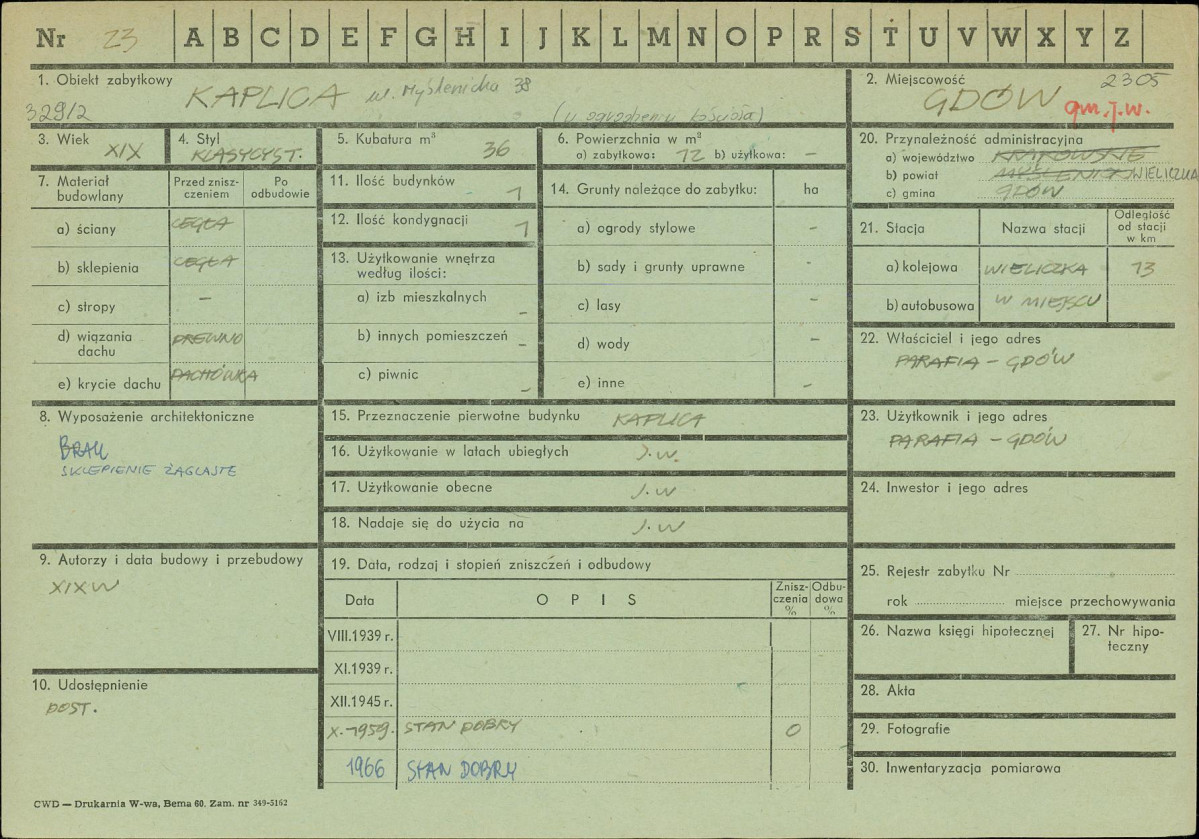 Nr 23 A B C D E F G H I J K L M N O P R S T U V W X Y Z
1. Obiekt zabytkowy
KAPLICA ul. Myślenicka 38
329/2
(w ogrodzeniu kościoła)
2. Miejscowość 2305
GDÓW gm. j.w.
3. Wiek XIX
4. Styl KLASYCYST.
5. Kubatura m³ 36
6. Powierzchnia w m²
a) zabytkowa: 12 b) użytkowa: –
20. Przynależność administracyjna
a) województwo KRAKOWSKIE
b) powiat MYŚLENICKI WIELICZKA
c) gmina GDÓW
7. Materiał budowlany
Przed zniszczeniem
Po odbudowie
a) ściany CEGŁA
b) sklepienia CEGŁA
c) stropy –
d) wiązania dachu DREWNO
e) krycie dachu DACHÓWKA
11. Ilość budynków 1
12. Ilość kondygnacji 1
13. Użytkowanie wnętrza
według ilości:
a) izb mieszkalnych –
b) innych pomieszczeń –
c) piwnic –
14. Grunty należące do zabytku: ha
a) ogrody stylowe –
b) sady i grunty uprawne –
c) lasy –
d) wody –
e) inne –
21. Stacja Nazwa stacji Odległość od stacji w km
a) kolejowa WIELICZKA 13
b) autobusowa W MIEJSCU
22. Właściciel i jego adres
PARAFIA – GDÓW
8. Wyposażenie architektoniczne
BRAK
SKLEPIENIE ŻAGLASTE
15. Przeznaczenie pierwotne budynku KAPLICA
16. Użytkowanie w latach ubiegłych J.W.
17. Użytkowanie obecne J.W
18. Nadaje się do użycia na J.W
23. Użytkownik i jego adres
PARAFIA – GDÓW
24. Inwestor i jego adres
9. Autorzy i data budowy i przebudowy
XIX W
19. Data, rodzaj i stopień zniszczeń i odbudowy
Data OPIS Zniszczenia % Odbudowa %
VIII.1939 r.
XI.1939 r.
XII.1945 r.
X.-1959. STAN DOBRY 0
1966 STAN DOBRY
10. Udostępnienie
DOST.
25. Rejestr zabytku Nr
rok miejsce przechowywania
26. Nazwa księgi hipotecznej
27. Nr hipoteczny
28. Akta
29. Fotografie
30. Inwentaryzacja pomiarowa
CWD — Drukarnia W-wa, Bema 60. Zam. nr 349-5162